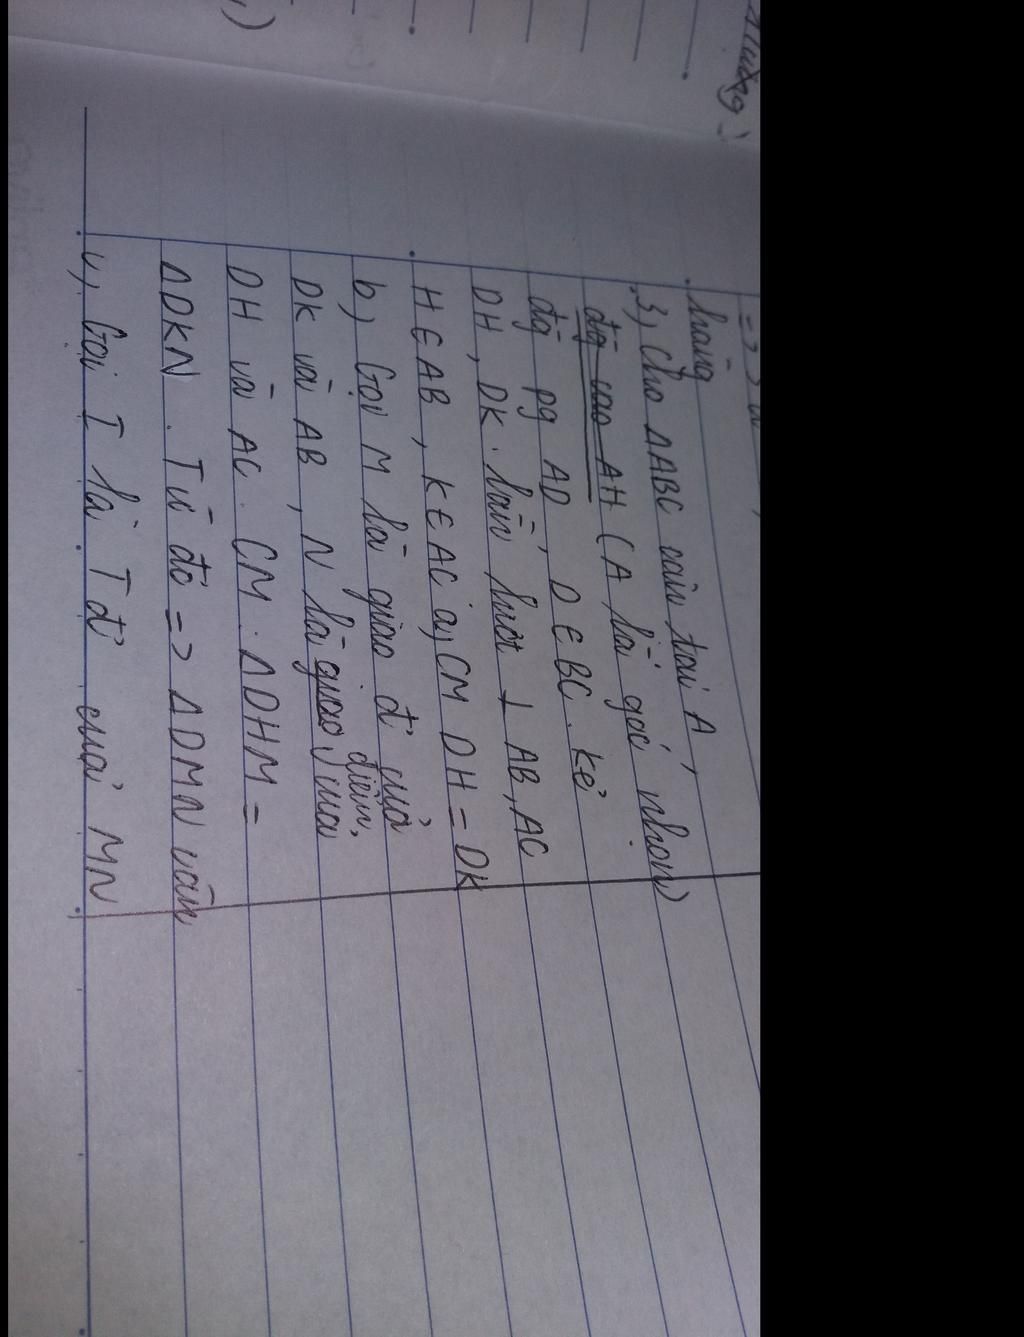 hàng
3, Cho ΔABC cân tại A,
đg cao AH (A là góc nhọn)
đg pg AD, D ∈ BC. Kẻ
DH, DK. lần lượt ⊥ AB, AC
H ∈ AB, K ∈ AC a, CM DH = DK
b) Gọi M là giao đ' của
DK và AB, N là giao điểm của
DH và AC. CM. ΔDHM =
ΔDKN. Từ đó => ΔDMN cân
c, Gọi I là Tđ' của MN